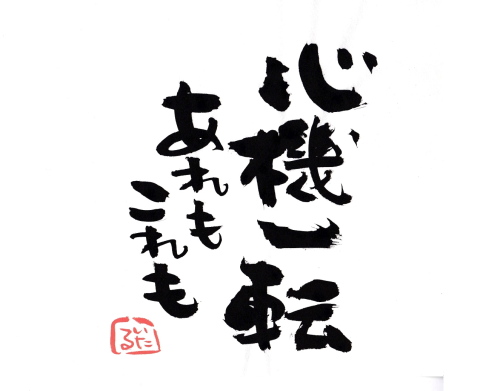 心機一転
あれも
これも
いた
る